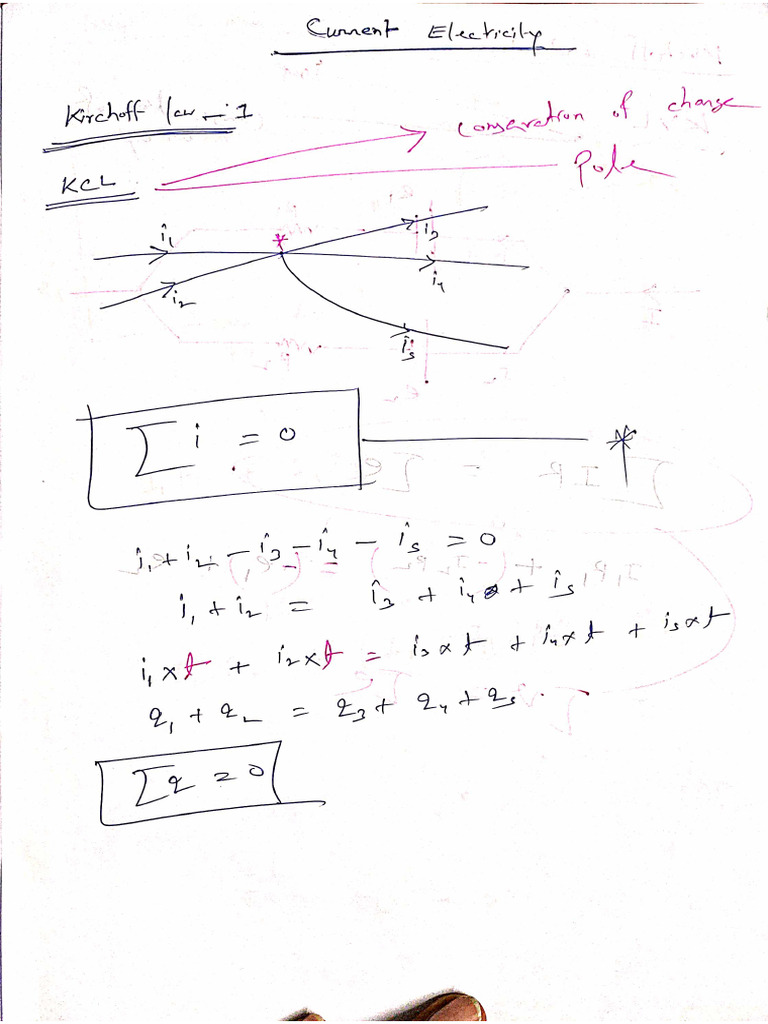 Current Electricity
Kirchoff law - 1
conservation of charge
KCL
i₁ i₂ i₃ i₄ i₅
Σ i = 0
i₁ + i₂ - i₃ - i₄ - i₅ = 0
i₁ + i₂ = i₃ + i₄ + i₅
i₁ x t + i₂ x t = i₃ x t + i₄ x t + i₅ x t
q₁ + q₂ = q₃ + q₄ + q₅
Σ q = 0